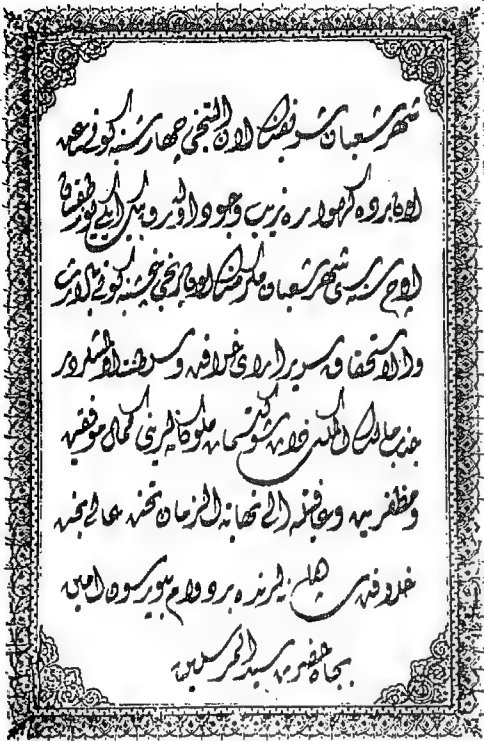 شهر شعبان شریفنك اون التنجی چهارشنبه کونی
اون برده کهواره زیب وجود و بیك ایکی یوز طقسان
اوچ سنه سی شهر شعبان مکرمنك اون برنجی پنجشنبه کونی بالارث
والاستحقاق سریر ارای خلافت و سلطنت اولمشلردر
جناب مالك الملك ذات شوکتسمات ملوکانه لرینی کمال موفقیت
و مظفریت و عافیتله الی نهایة الزمان تخت عالی بخت
خلافت پناهیلرنده بر دوام بیورسون امین
بجاه حضرت سید المرسلین